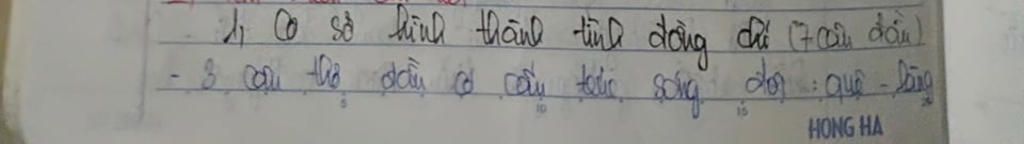 1, Cơ sở hình thành tình đồng chí (7 câu đầu)
- 3 câu thơ đầu có cấu trúc sóng đôi : quê - làng
HONG HA